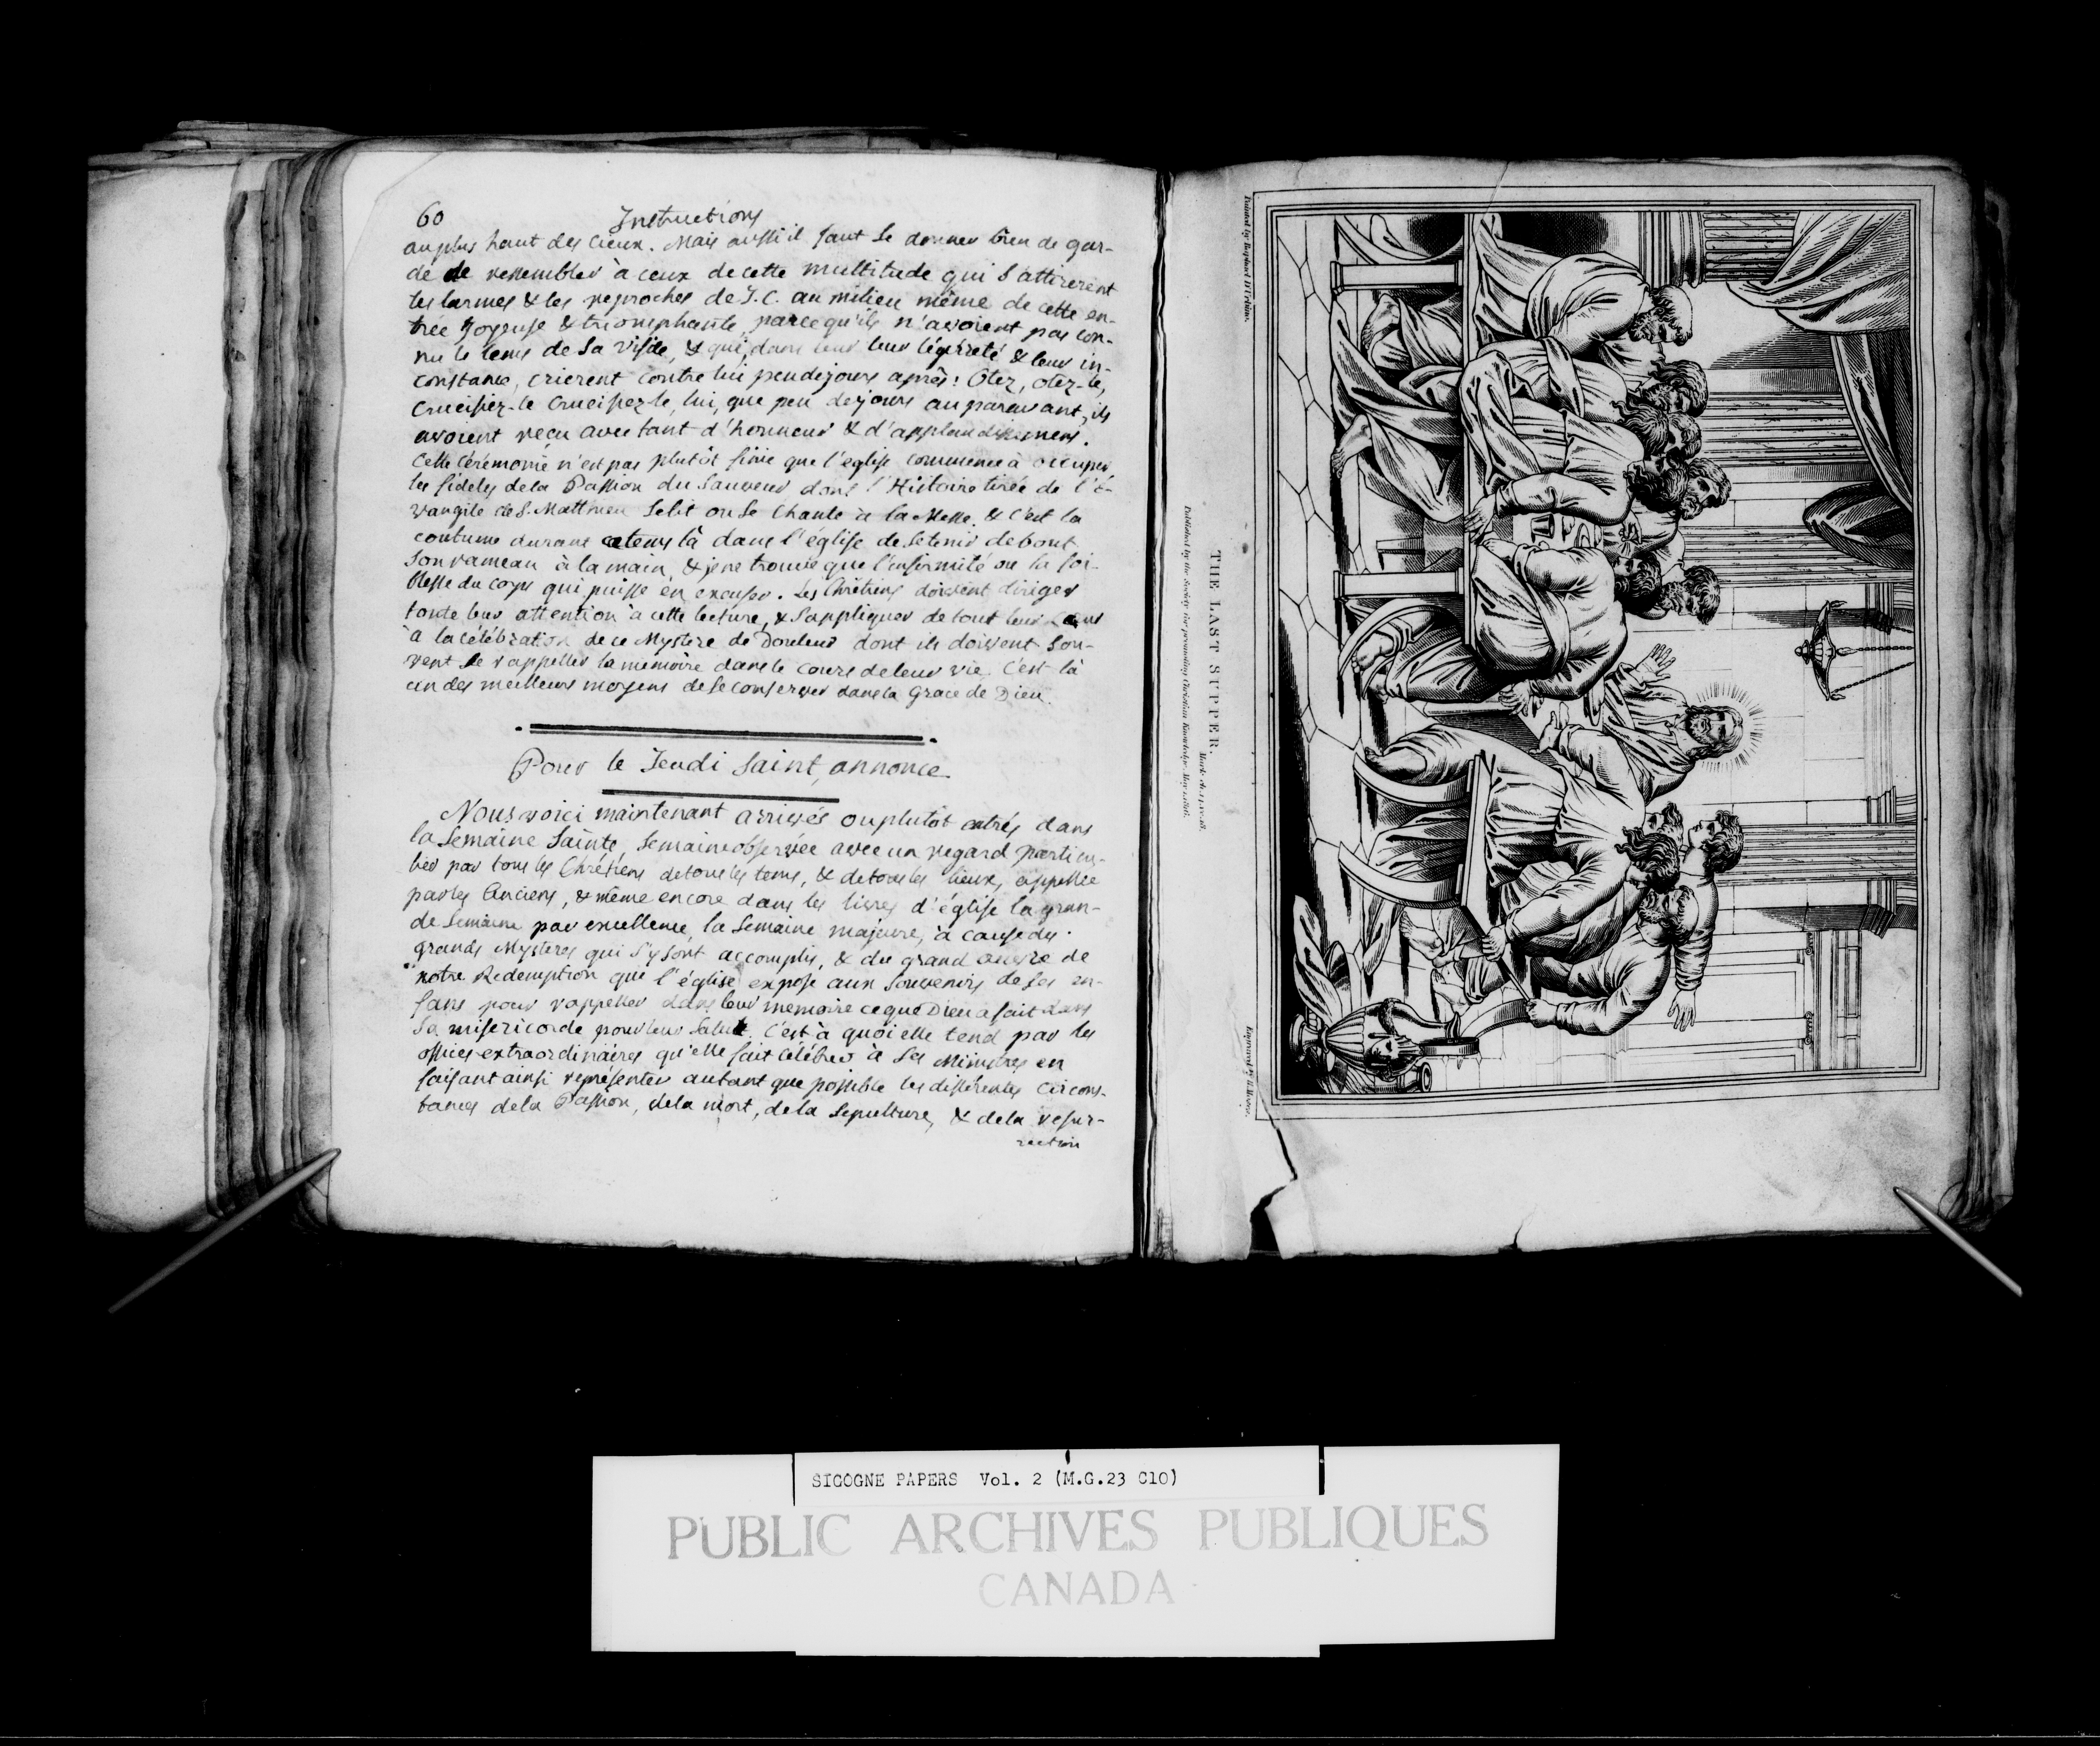 60
Instructions
au plus haut des Cieux. Mais aussi il faut se donner bien de gar-
de de ressembler à ceux de cette multitude qui s'attirerent
les larmes & les reproches de J.C. au milieu même de cette en-
trée joyeuse & triomphante, parcequ'ils n'avoient pas con-
nu le tems de sa visite, & qui, dans leur légèreté & leur in-
constance, crierent contre lui peu de jours après: Otez, otez-le,
Crucifiez-le Crucifiez le, lui, que peu de jours auparavant, ils
avoient reçu avec tant d'honneur & d'applaudissemens.
Cette Cérémonie n'est pas plutôt finie que l'eglise commence à occuper
les fideles de la Passion du Sauveur dont l'Histoire tirée de l'É-
vangile de S. Matthieu se lit ou se Chante à la Messe. & C'est la
coutume durant ce tems là dans l'église de se tenir debout
son rameau à la main, & je ne trouve que l'infirmité ou la foi-
blesse du corps qui puisse en excuser. Les Chrétiens doivent diriger
toute leur attention à cette lecture, & s'appliquer de tout leur
à la célébration de ce Mystere de Douleur dont ils doivent sou-
vent se rappeller la mémoire dans le cours de leur vie. C'est là
un des meilleurs moyens de se conserver dans la Grace de Dieu.
Pour le Jeudi Saint, annonce
Nous voici maintenant arrivés ou plutôt entrés dans
la Semaine Sainte, Semaine observée avec un regard particu-
lier par tous les Chrétiens de tous les tems, & de tous les lieux, appellée
par les Anciens, & même encore dans les livres d'église la gran-
de Semaine par excellence, la Semaine majeure, à cause des
grands Mysteres qui s'y sont accomplis, & du grand œuvre de
notre Redemption que l'église expose aux souvenirs de ses en-
fans pour rappeller dans leur memoire ce que Dieu a fait dans
sa misericorde pour leur Salut. C'est à quoi elle tend par les
offices extraordinaires qu'elle fait célébrer à ses Ministres en
faisant ainsi représenter autant que possible les différentes Circons-
tances de la Passion, de la mort, de la Sepulture, & de la resur-
rection
Painted by Raphael D'Urbino.
Engraved by
THE LAST SUPPER.
Mark ch.
Published by the Society for promoting Christian Knowledge.
SICOGNE PAPERS Vol. 2 (M.G.23 C10)
PUBLIC ARCHIVES PUBLIQUES
CANADA